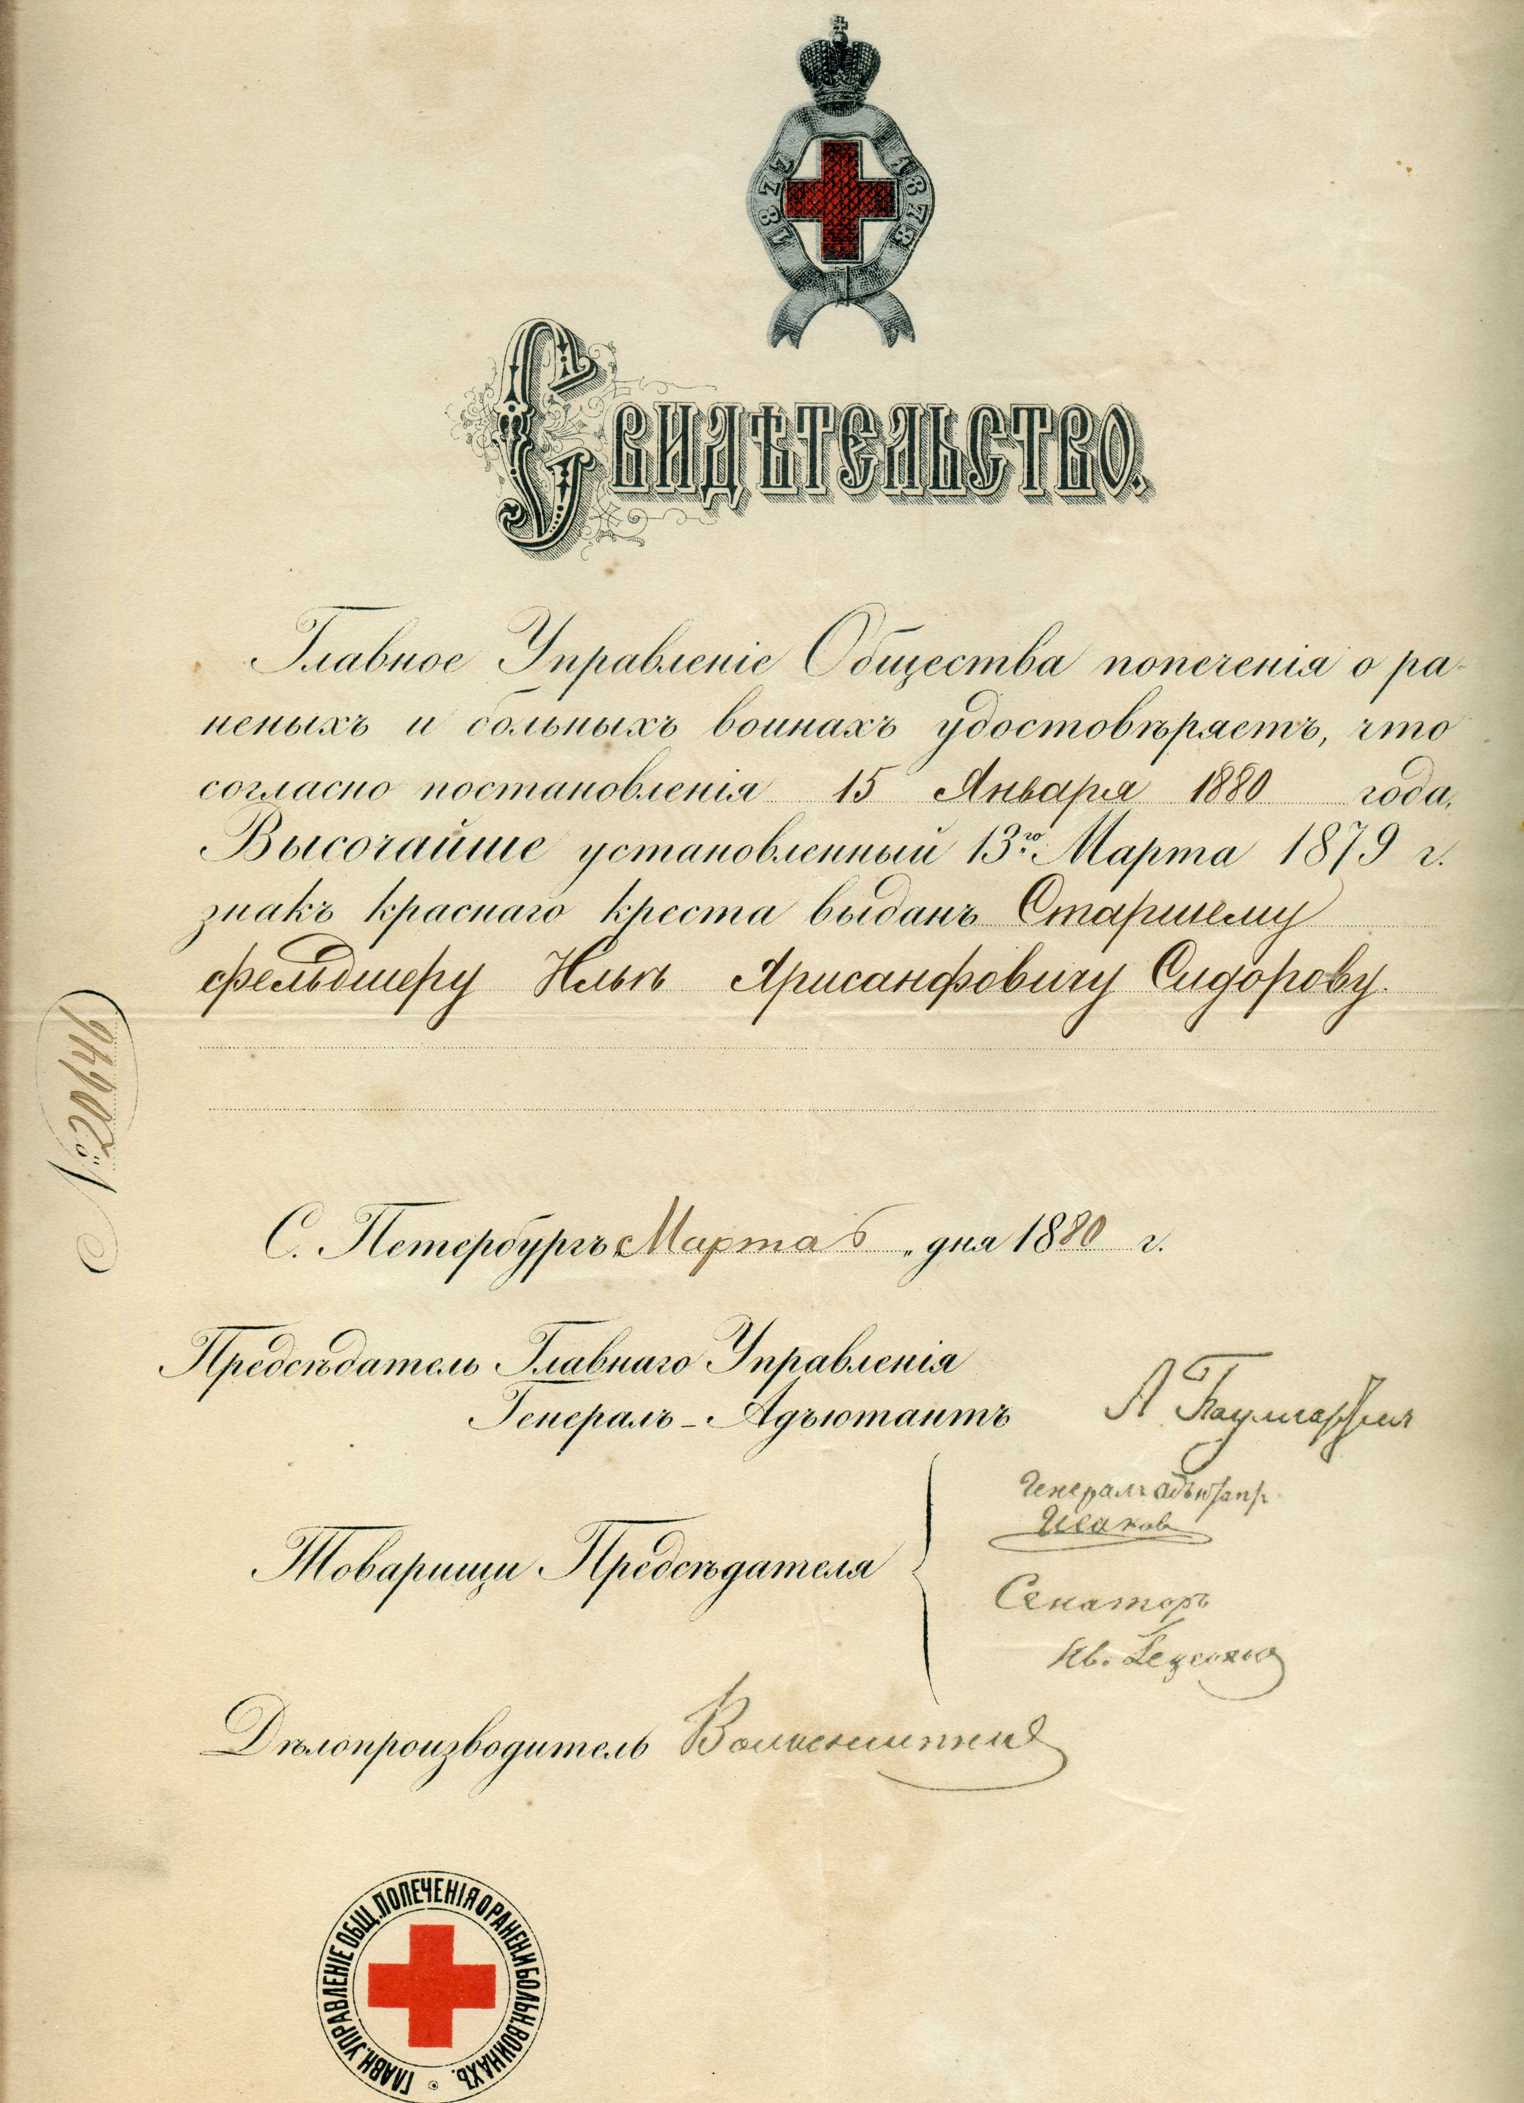 1877 1878
Свидѣтельство.
Главное Управленіе Общества попеченія о ра-
неныхъ и больныхъ воинахъ удостовѣряетъ, что
согласно постановленія 15 Января 1880 года,
Высочайше установленный 13го Марта 1879 г.
знакъ краснаго креста выданъ Старшему
фельдшеру Ильѣ Хрисанфовичу Сидорову.
№ 20646
С. Петербургъ „Марта 6 „ дня 1880 г.
Предсѣдатель Главнаго Управленія
Генералъ-Адъютантъ А Баумгартен
Генералъ адъютантъ
Исаков
Товарищи Предсѣдателя
Сенаторъ
Ив.
Дѣлопроизводитель
ГЛАВН. УПРАВЛЕНІЕ ОБЩ. ПОПЕЧЕНІЯ О РАНЕН. И БОЛЬН. ВОИНАХЪ.